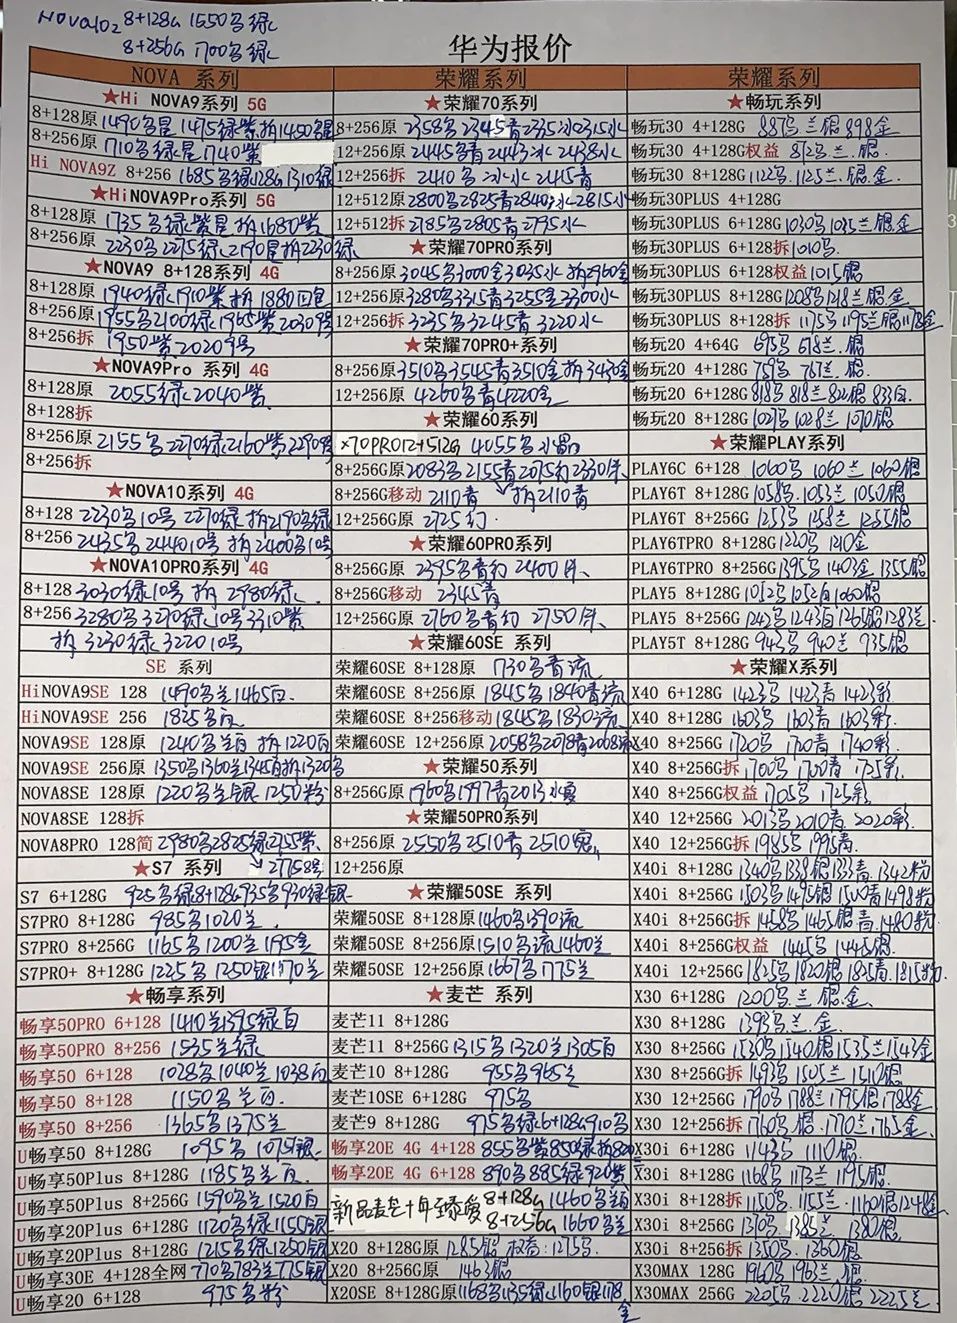 Nova10z 8+128G 1550名绿
8+256G 1700名绿
华为报价
NOVA 系列
★Hi NOVA9系列 5G
8+128原 1490名星 1475绿紫 拆1450名星
8+256原 1710名绿星 1740紫
Hi NOVA9Z 8+256 1685名绿128G 1310绿
★HiNOVA9Pro系列 5G
8+128原 1735名绿紫星拆1680紫
8+256原 2230名2275绿2190星拆2230绿
★NOVA9 8+128系列 4G
8+128原 1940绿1910紫 拆1880
8+256原 1955名2100绿1965紫2030号
8+256拆 1950紫2020号
★NOVA9Pro 系列 4G
8+128原 2055绿2040紫
8+128拆
8+256原 2155名2270绿2160紫2290号
8+256拆
★NOVA10系列 4G
8+128 2230名10号 2270绿拆2190名绿
8+256 2435名244010号 拆2400名10号
★NOVA10PRO系列 4G
8+128 3030绿10号 拆 2980绿
8+256 3280名3270绿10号3310紫
拆 3230绿 322010号
SE 系列
HiNOVA9SE 128 1490名兰1465白
HiNOVA9SE 256 1825名白
NOVA9SE 128原 1240名兰白 拆1220白
NOVA9SE 256原 1350名1360兰1345白拆1320名
NOVA8SE 128原 1220名兰银 1250粉
NOVA8SE 128拆
NOVA8PRO 128简 2980名2825绿2755紫
★S7 系列 27758号
S7 6+128G 925名绿8+128G935名930绿银
S7PRO 8+128G 985名1020兰
S7PRO 8+256G 1165名1200兰1195金
S7PRO+ 8+128G 1225名1250银1170兰
★畅享系列
畅享50PRO 6+128 1410兰1395绿白
畅享50PRO 8+256 1535兰绿
畅享50 6+128 1028名1040兰1038白
畅享50 8+128 1150名兰白
畅享50 8+256 1365名1375兰
U畅享50 8+128G 1095名1075银
U畅享50Plus 8+128G 1185名兰白
U畅享50Plus 8+256G 1590名兰1520白
U畅享20Plus 6+128G 1120名绿1155银
U畅享20Plus 8+128G 1215名绿1250银
U畅享30E 4+128全网 770名783兰775银
U畅享20 6+128 975名粉
荣耀系列
★荣耀70系列
8+256原 2358名2345青2335冰2315水
12+256原 2445名青2443冰2438水
12+256拆 2410名冰水2415青
12+512原 2800名2825青2840冰2815水
12+512拆 2185名2805青2795水
★荣耀70PRO系列
8+256原 3045名3000金3035水拆2960金
12+256原 3280名3315青3255金3300水
12+256拆 3235名3245青3220水
★荣耀70PRO+系列
8+256原 3510名3545青3510金拆3430金
12+256原 4260名青4220金
★荣耀60系列
x70PRO12+512G 4055名水晶
8+256G原 2083名2155青2075幻2330冰
8+256G移动 2110青 拆2110青
12+256G原 2725幻
★荣耀60PRO系列
8+256G原 2395名青幻2400冰
8+256G移动 2345青
12+256G原 2760名青幻 2750冰
★荣耀60SE 系列
荣耀60SE 8+128原 1730名青流
荣耀60SE 8+256原 1845名1840青流
荣耀60SE 8+256移动 1845名1830流
荣耀60SE 12+256原 2058名2078青2068流
★荣耀50系列
8+256G原 1960名1997青2013水
★荣耀50PRO系列
8+256原 2550名2510青2510
12+256原
★荣耀50SE 系列
荣耀50SE 8+128原 1460名1390流
荣耀50SE 8+256原 1510名流1460兰
荣耀50SE 12+256原 1667名1775兰
★麦芒 系列
麦芒11 8+128G
麦芒11 8+256G 1315名1320兰1305白
麦芒10 8+128G 955名965兰
麦芒10SE 6+128G 975名
麦芒9 8+128G 975名绿6+128G910名
畅享20E 4G 4+128 855名紫850绿拆820
畅享20E 4G 6+128 890名885绿920紫
新品麦芒十年至臻爱 8+128G 1460名兰白
8+256G 1660名兰
X20 8+128G原 1285银 权益:1275名
X20 8+256G原 1463银
X20SE 8+128G原 1168名1135绿1160银1178金
荣耀系列
★畅玩系列
畅玩30 4+128G 887名.兰银898金
畅玩30 4+128G权益 872名兰.银
畅玩30 8+128G 1122名.1125兰.银.金
畅玩30PLUS 4+128G
畅玩30PLUS 6+128G 1030名1025兰银金
畅玩30PLUS 6+128拆 1010名
畅玩30PLUS 6+128权益 1015银
畅玩30PLUS 8+128G 1208名1218兰银.金
畅玩30PLUS 8+128拆 1175名1195兰银1178金
畅玩20 4+64G 695名 678兰.银
畅玩20 4+128G 759名 767兰.银
畅玩20 6+128G 818名818兰822银833白
畅玩20 8+128G 1027名1028兰1070银
★荣耀PLAY系列
PLAY6C 6+128 1060名1060兰1060银
PLAY6T 8+128G 1058名.1053兰1050银
PLAY6T 8+256G 1253名1258兰1255银
PLAY6TPRO 8+128G 1220名1210金
PLAY6TPRO 8+256G 1395名1403金1355银
PLAY5 8+128G 1052名1052白1060银
PLAY5 8+256G 1242名1243白1265银1283兰
PLAY5T 8+128G 943名 940兰 935银
★荣耀X系列
X40 6+128G 1423名1423青1423彩
X40 8+128G 1603名1603青1603彩
X40 8+256G 1720名1720青1740彩
X40 8+256G拆 1700名1700青1725彩
X40 8+256G权益 1705名1725彩
X40 12+256G 2013名2010青2020彩
X40 12+256G拆 1985名1995青
X40i 8+128G 1340名1338银1331青1342粉
X40i 8+256G 1503名1495银1500青1498粉
X40i 8+256G拆 1458名1465银青1480粉
X40i 8+256G权益 1445名1445银
X40i 12+256G 1825名1820银1825青1815粉
X30 6+128G 1200名.兰.银.金
X30 8+128G 1393名.兰.金
X30 8+256G 1530名1540银1535兰1543金
X30 8+256G拆 1493名1505兰1510银
X30 12+256G 1790名1788兰1795银1788金
X30 12+256拆 1760名1770兰1765金
X30i 6+128G 1143名1110银
X30i 8+128G 1168名1173兰1195银
X30i 8+128拆 1150名1155兰1160银1248金
X30i 8+256G 1370名1385兰1380银
X30i 8+256拆 1350名1360银
X30MAX 128G 1960名1963兰.银
X30MAX 256G 2205名2220银2225兰